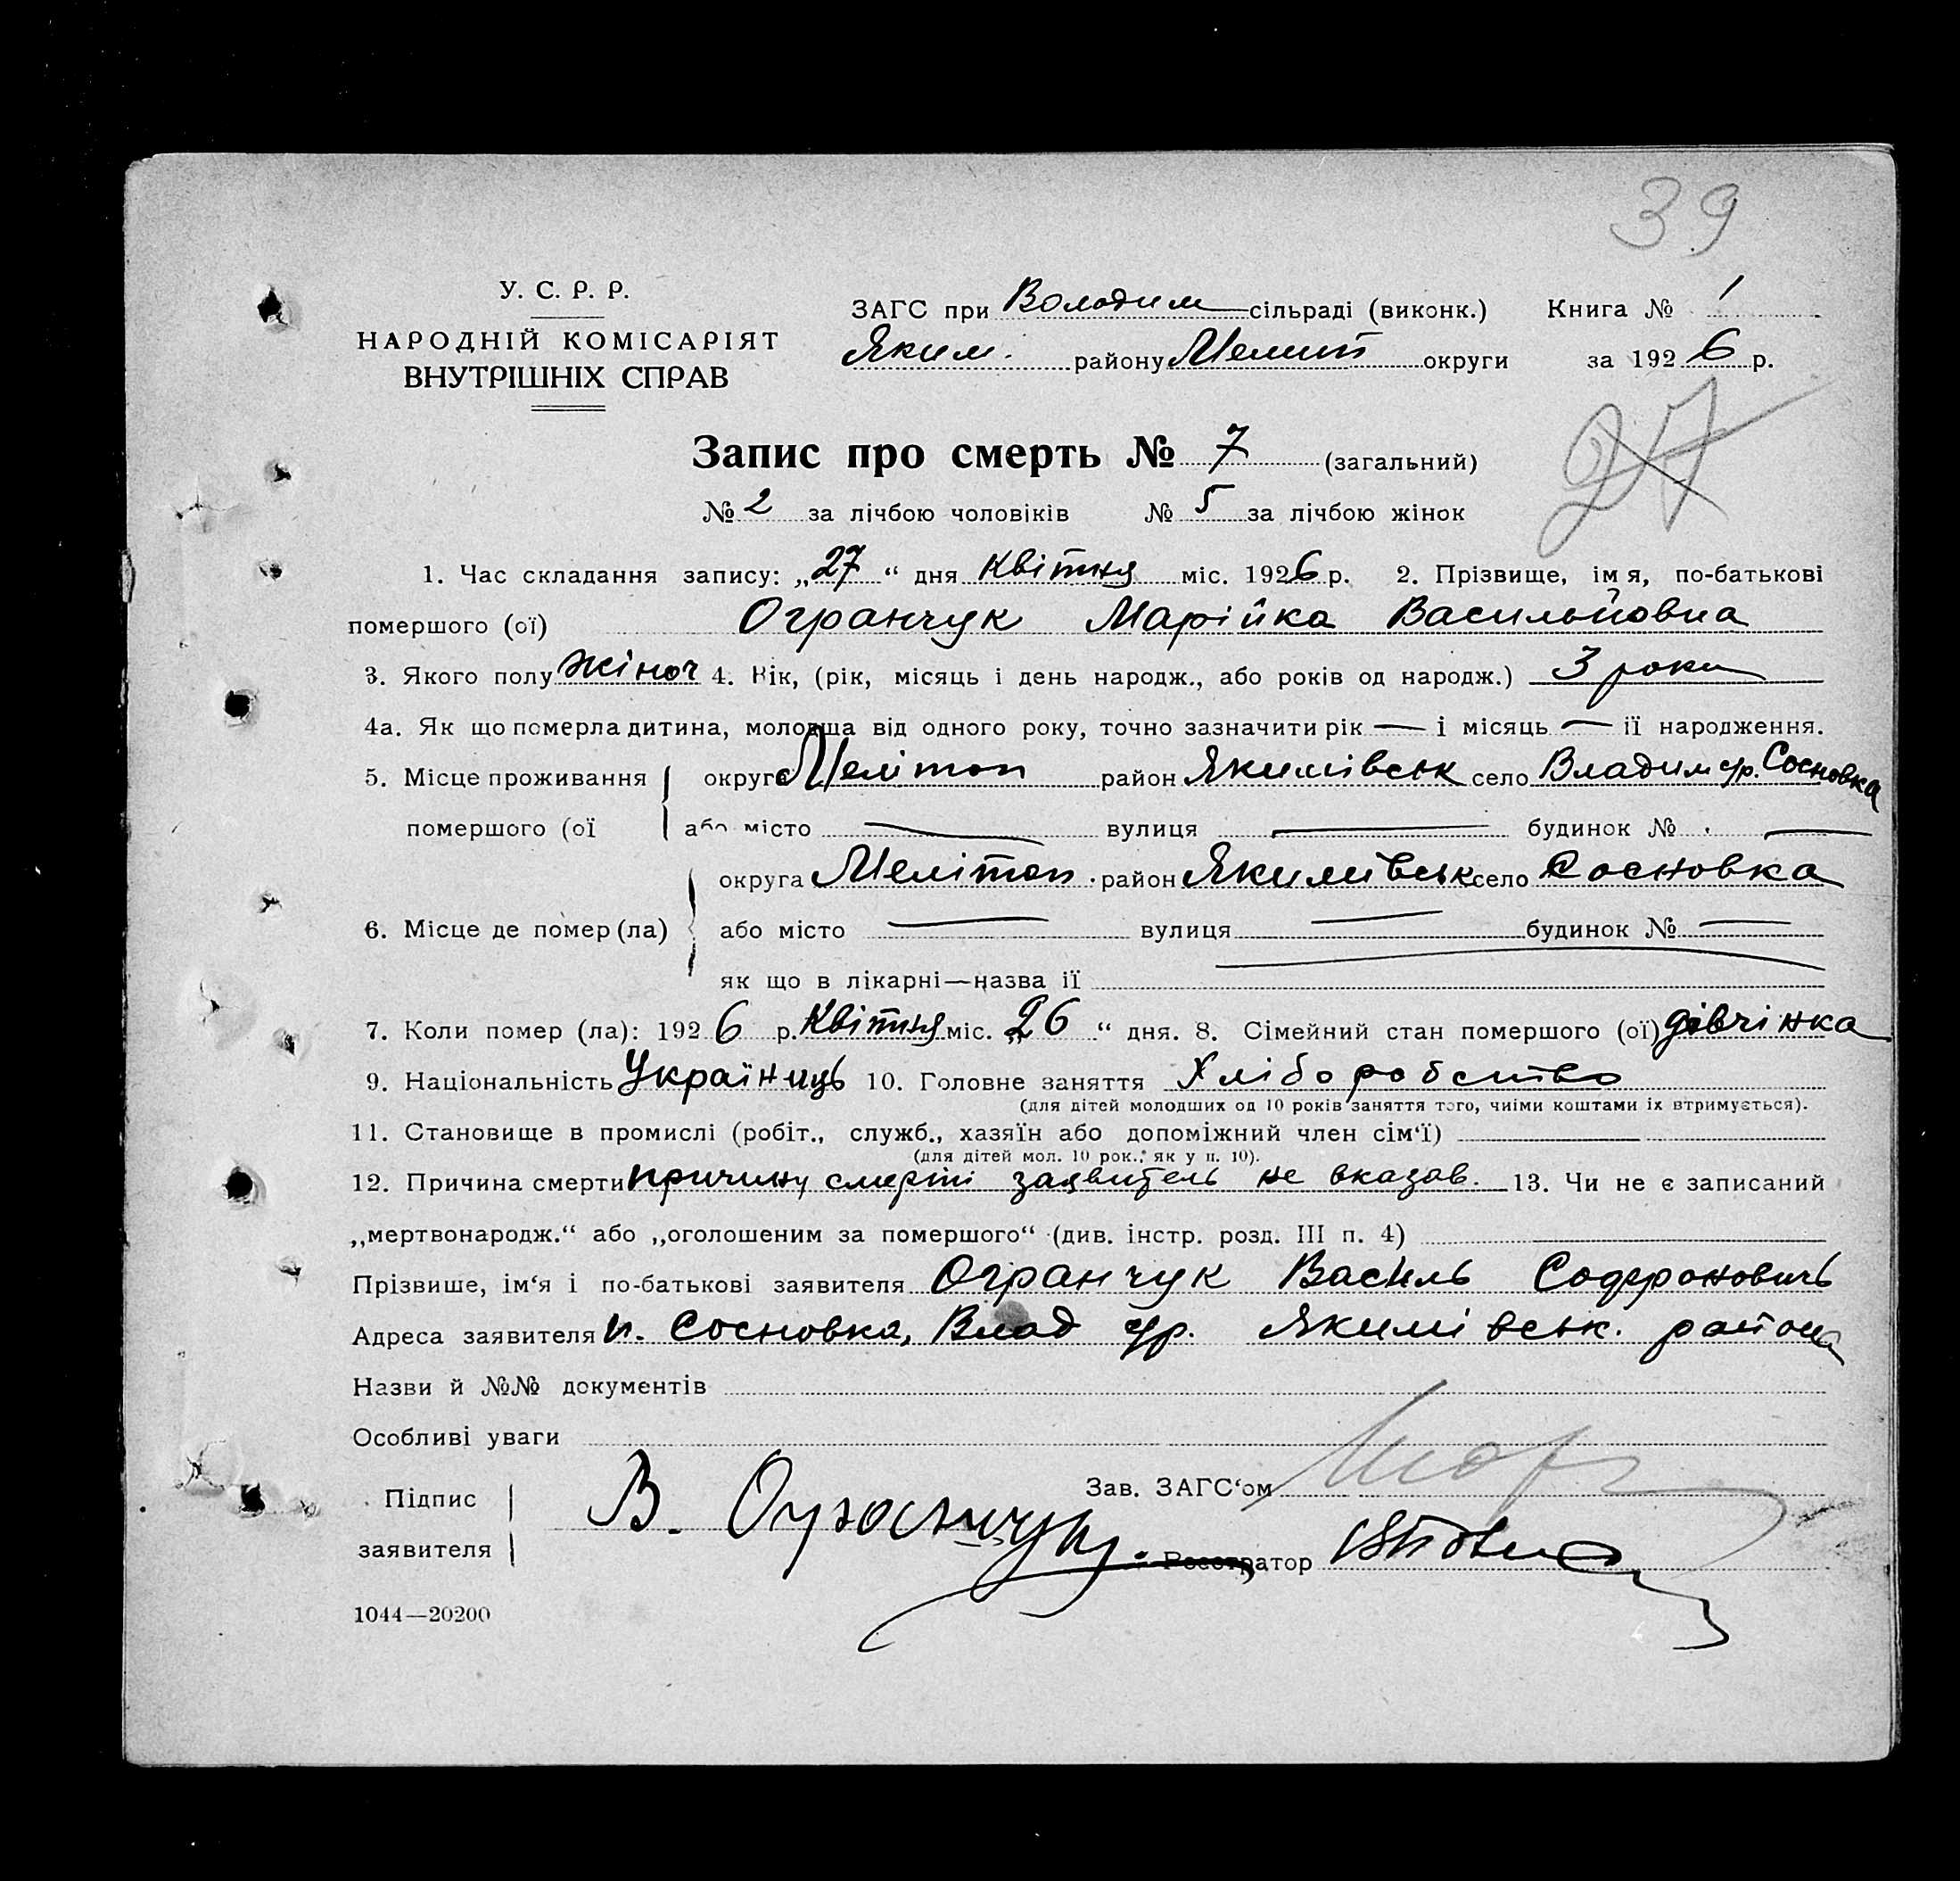 39
У. С. Р. Р.
НАРОДНІЙ КОМІСАРІЯТ
ВНУТРІШНІХ СПРАВ
ЗАГС при Володим сільраді (виконк.) Книга № 1
Яким. району Мелит округи за 1926 р.
27
Запис про смерть № 7 (загальний)
№ 2 за лічбою чоловіків № 5 за лічбою жінок
1. Час складання запису: „27“ дня квітня міс. 1926 р. 2. Прізвище, імя, по-батькові
помершого (ої) Огранчук Марійка Васильйовна
3. Якого полу жіноч 4. Вік, (рік, місяць і день народж., або років од народж.) 3 роки
4а. Як що померла дитина, молодша від одного року, точно зазначити рік — і місяць — її народження.
5. Місце проживання округа Мелітоп район Якимівськ село Владим ср. Сосновка
помершого (ої або місто — вулиця — будинок № —
округа Мелітоп. район Якимівськ село Сосновка
6. Місце де помер (ла) або місто — вулиця — будинок № —
як що в лікарні—назва її —
7. Коли помер (ла): 1926 р. Квітня міс. „26“ дня. 8. Сімейний стан помершого (ої) дівчінка
9. Національність Українць 10. Головне заняття Хліборобство
(для дітей молодших од 10 років заняття того, чиїми коштами їх втримується).
11. Становище в промислі (робіт., служб., хазяїн або допоміжний член сім‘ї) —
(для дітей мол. 10 рок., як у п. 10).
12. Причина смерти причину смерті заявитель не вказав. 13. Чи не є записаний
„мертвонародж.“ або „оголошеним за помершого“ (див. інстр. розд. III п. 4) —
Прізвише, ім‘я і по-батькові заявителя Огранчук Василь Софроновичь
Адреса заявителя п. Сосновка, Влад ср. Якимівськ. района
Назви й №№ документів
Особливі уваги
Підпис заявителя В. Огранчук.
Зав. ЗАГС‘ом
Реєстратор
1044—20200